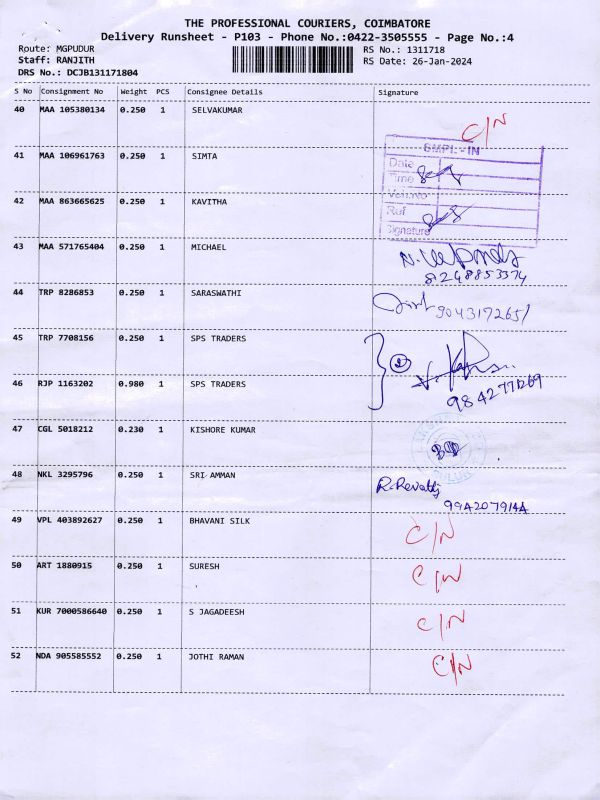 THE PROFESSIONAL COURIERS, COIMBATORE
Delivery Runsheet - P103 - Phone No.:0422-3505555 - Page No.:4
Route: MGPUDUR RS No.: 1311718
Staff: RANJITH RS Date: 26-Jan-2024
DRS No.: DCJB131171804
S No Consignment No Weight PCS Consignee Details Signature
40 MAA 105380134 0.250 1 SELVAKUMAR C/N
SMPL-IN
41 MAA 106961763 0.250 1 SIMTA
Date
Time
Veh.No
42 MAA 863665625 0.250 1 KAVITHA
Ref
Signature
43 MAA 571765404 0.250 1 MICHAEL
81248853374
44 TRP 8286853 0.250 1 SARASWATHI 9043172651
45 TRP 7708156 0.250 1 SPS TRADERS
46 RJP 1163202 0.980 1 SPS TRADERS 9842771269
47 CGL 5018212 0.230 1 KISHORE KUMAR
48 NKL 3295796 0.250 1 SRI AMMAN R.Revathy
9942079144
49 VPL 403892627 0.250 1 BHAVANI SILK C/N
50 ART 1880915 0.250 1 SURESH C/N
51 KUR 7000586640 0.250 1 S JAGADEESH C/N
52 NDA 905585552 0.250 1 JOTHI RAMAN C/N